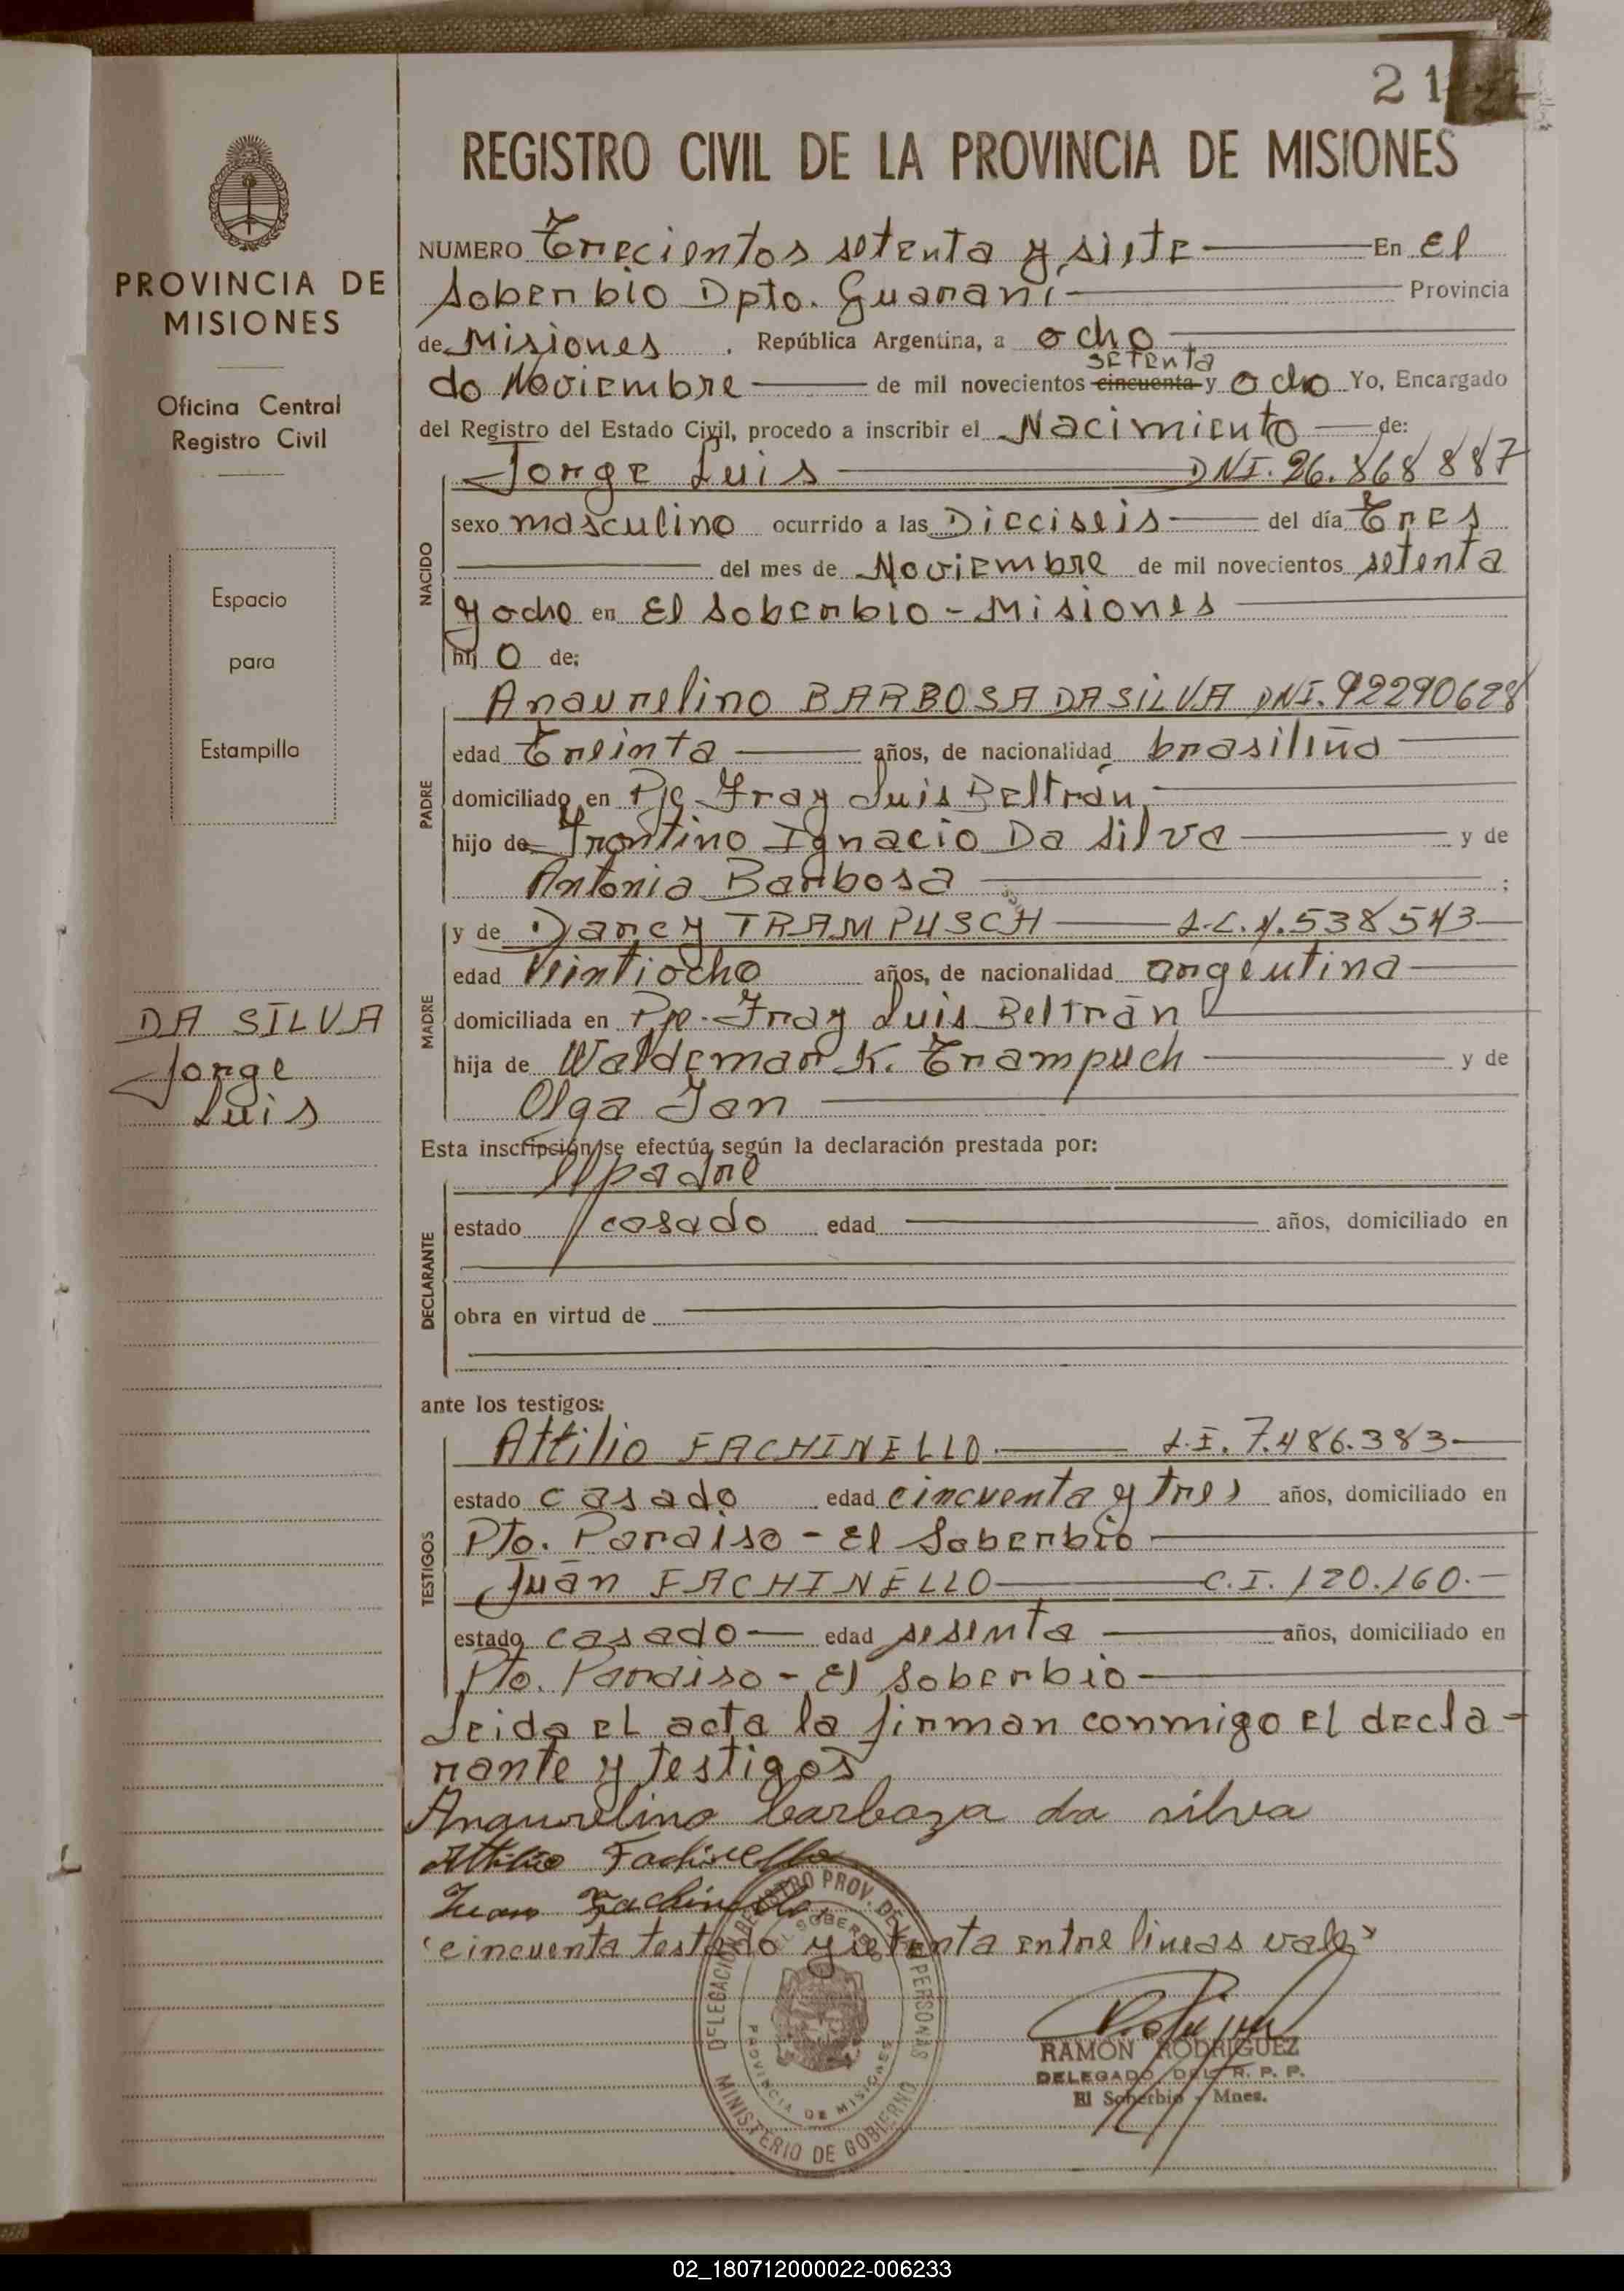 21
REGISTRO CIVIL DE LA PROVINCIA DE MISIONES
PROVINCIA DE
MISIONES
Oficina Central
Registro Civil
Espacio
para
Estampilla
DA SILVA
Jorge
Luis
NUMERO Trecientos setenta y siete En El
Soberbio Dpto. Guaraní Provincia
de Misiones . República Argentina, a ocho
setenta
do Noviembre de mil novecientos cincuenta y ocho Yo, Encargado
del Registro del Estado Civil, procedo a inscribir el Nacimiento de:
Jorge Luis DNI. 26.868887
NACIDO
sexo masculino ocurrido a las Dieciseis del día Tres
del mes de Noviembre de mil novecientos setenta
y ocho en El Soberbio - Misiones
hij o de:
PADRE
Anaurelino BARBOSA DA SILVA DNI. 92290628
edad Treinta años, de nacionalidad brasileño
domiciliado en Pje Fray Luis Beltrán
hijo de Frontino Ignacio Da Silva y de
Antonia Barbosa ;
MADRE
y de Darcy TRAMPUSCH L.C. 4.538543
edad Veintiocho años, de nacionalidad argentina
domiciliada en Pje. Fray Luis Beltrán
hija de Waldemar K. Trampuch y de
Olga Jan
Esta inscripción se efectúa según la declaración prestada por:
DECLARANTE
el padre
estado casado edad años, domiciliado en
obra en virtud de
ante los testigos:
TESTIGOS
Attilio FACHINELLO L.I. 7.486.383
estado casado edad cincuenta y tres años, domiciliado en
Pto. Paraiso - El Soberbio
Juan FACHINELLO C.I. 120.160.
estado casado edad sesenta años, domiciliado en
Pto. Paraiso - El Soberbio
Leida el acta la firman conmigo el decla-
rante y testigos
Anaurelino barboza da silva
Attilio Fachinello
Juan Fachinello
"cincuenta testado y setenta entre lineas vale"
DELEGACION REGISTRO PROV. DE LAS PERSONAS
EL SOBERBIO
PROVINCIA DE MISIONES
MINISTERIO DE GOBIERNO
RAMÓN RODRIGUEZ
DELEGADO DEL R. P. P.
El Soberbio - Mnes.
02_180712000022-006233